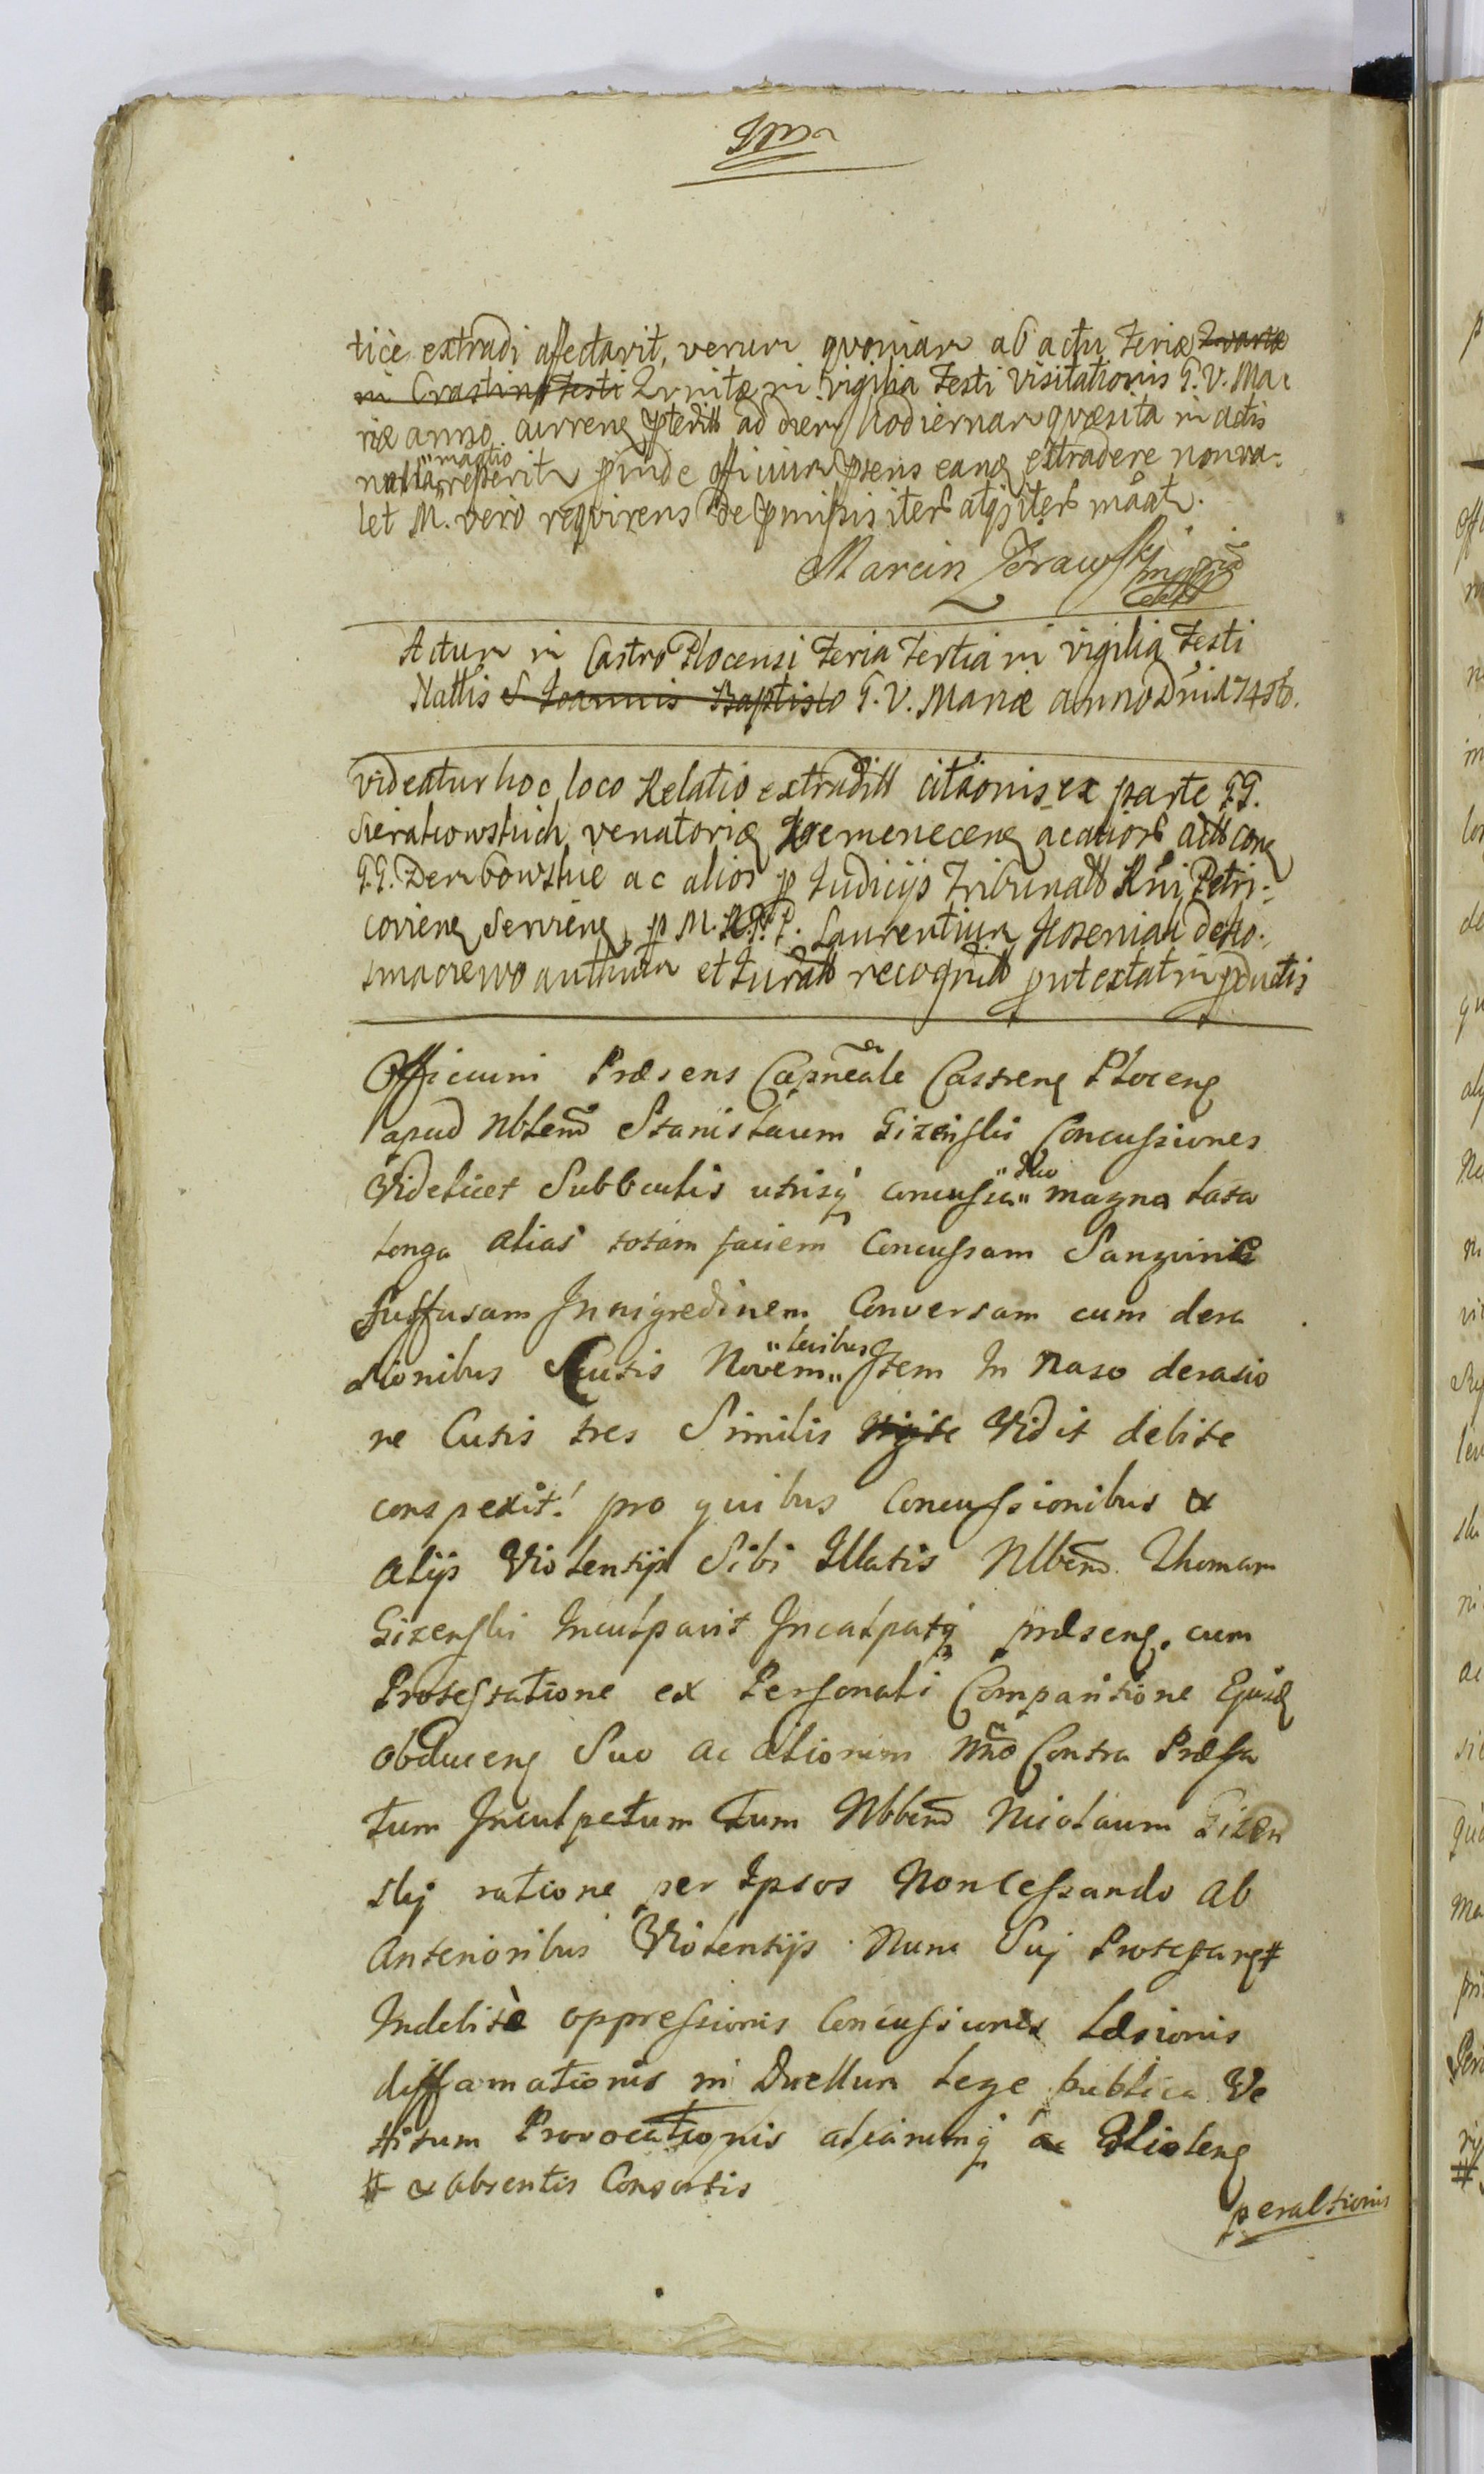 tice extradi affectavit, verum qvoniam ab actu Feriæ Qvartæ
in Crastino Festi Qvintæ in vigilia Festi Visitationis B. V. Ma-
riæ anno currenꝫ pterito ad diem hodiernam qvæsita in actis
nulla reperitur proinde officium psens eanꝫ extradere non va-
let M. vero reqvirens de pmissis iterũ atqz iterũ mãat.
Marcin Żórawski mpria
Actum in Castro Plocensi Feria Tertia in vigilia Festi
Nattis S Joannis Baptistæ B. V. Mariæ anno Dni 174
videatur hoc loco Relatio extraditt citãonis ex parte GG.
Sierakowskich venatoriꝫ ac aliorũ actt conꝫ
GG. Dembowskie ac alios p Judicijs Tribunatt Rñi Petri-
corienꝫ Servienꝫ, p M. Laurentium
authum et Juratt recognitt put extat in pductis
Officium Præsens Capnẽale Castrenꝫ Plocenꝫ
apud Nblem̃ Stanislaum Gizenski Concussiones
Videlicet Subbculis utrisq concussa "duo" magna lata
longa alias totam faciem Concussam Sangvine
suffusam In nigredinem Conversam cum dera
sionibus Cutis Novem "locibus" Item In Naso derasio
ne Cutis tres Similis Vidit debite
conspexit! pro quibus Concussionibus &
alijs Violentijs Sibi Illatis Nlbem̃ Thomam
Gizenski Inculpavit Inculpatq præsenꝫ. cum
Protestatione ex Personali Comparitione Ejusd
obducenꝫ Suo ac aliorum nñõ Contra Præfa
tum Inculpatum Tum Nbbem̃ Nicolaum Gizen
skij ratione per Ipsos Non Cessando ab
Anterioribus Violentijs Nunc Suj Protestanꝫ #
Indebitè oppressionis Concussiones Læsionis
diffamationis in Duellum lege publica Ve
titum Provocationis aliarumq ac Violenꝫ
# & absentis Consortis
peraltionis